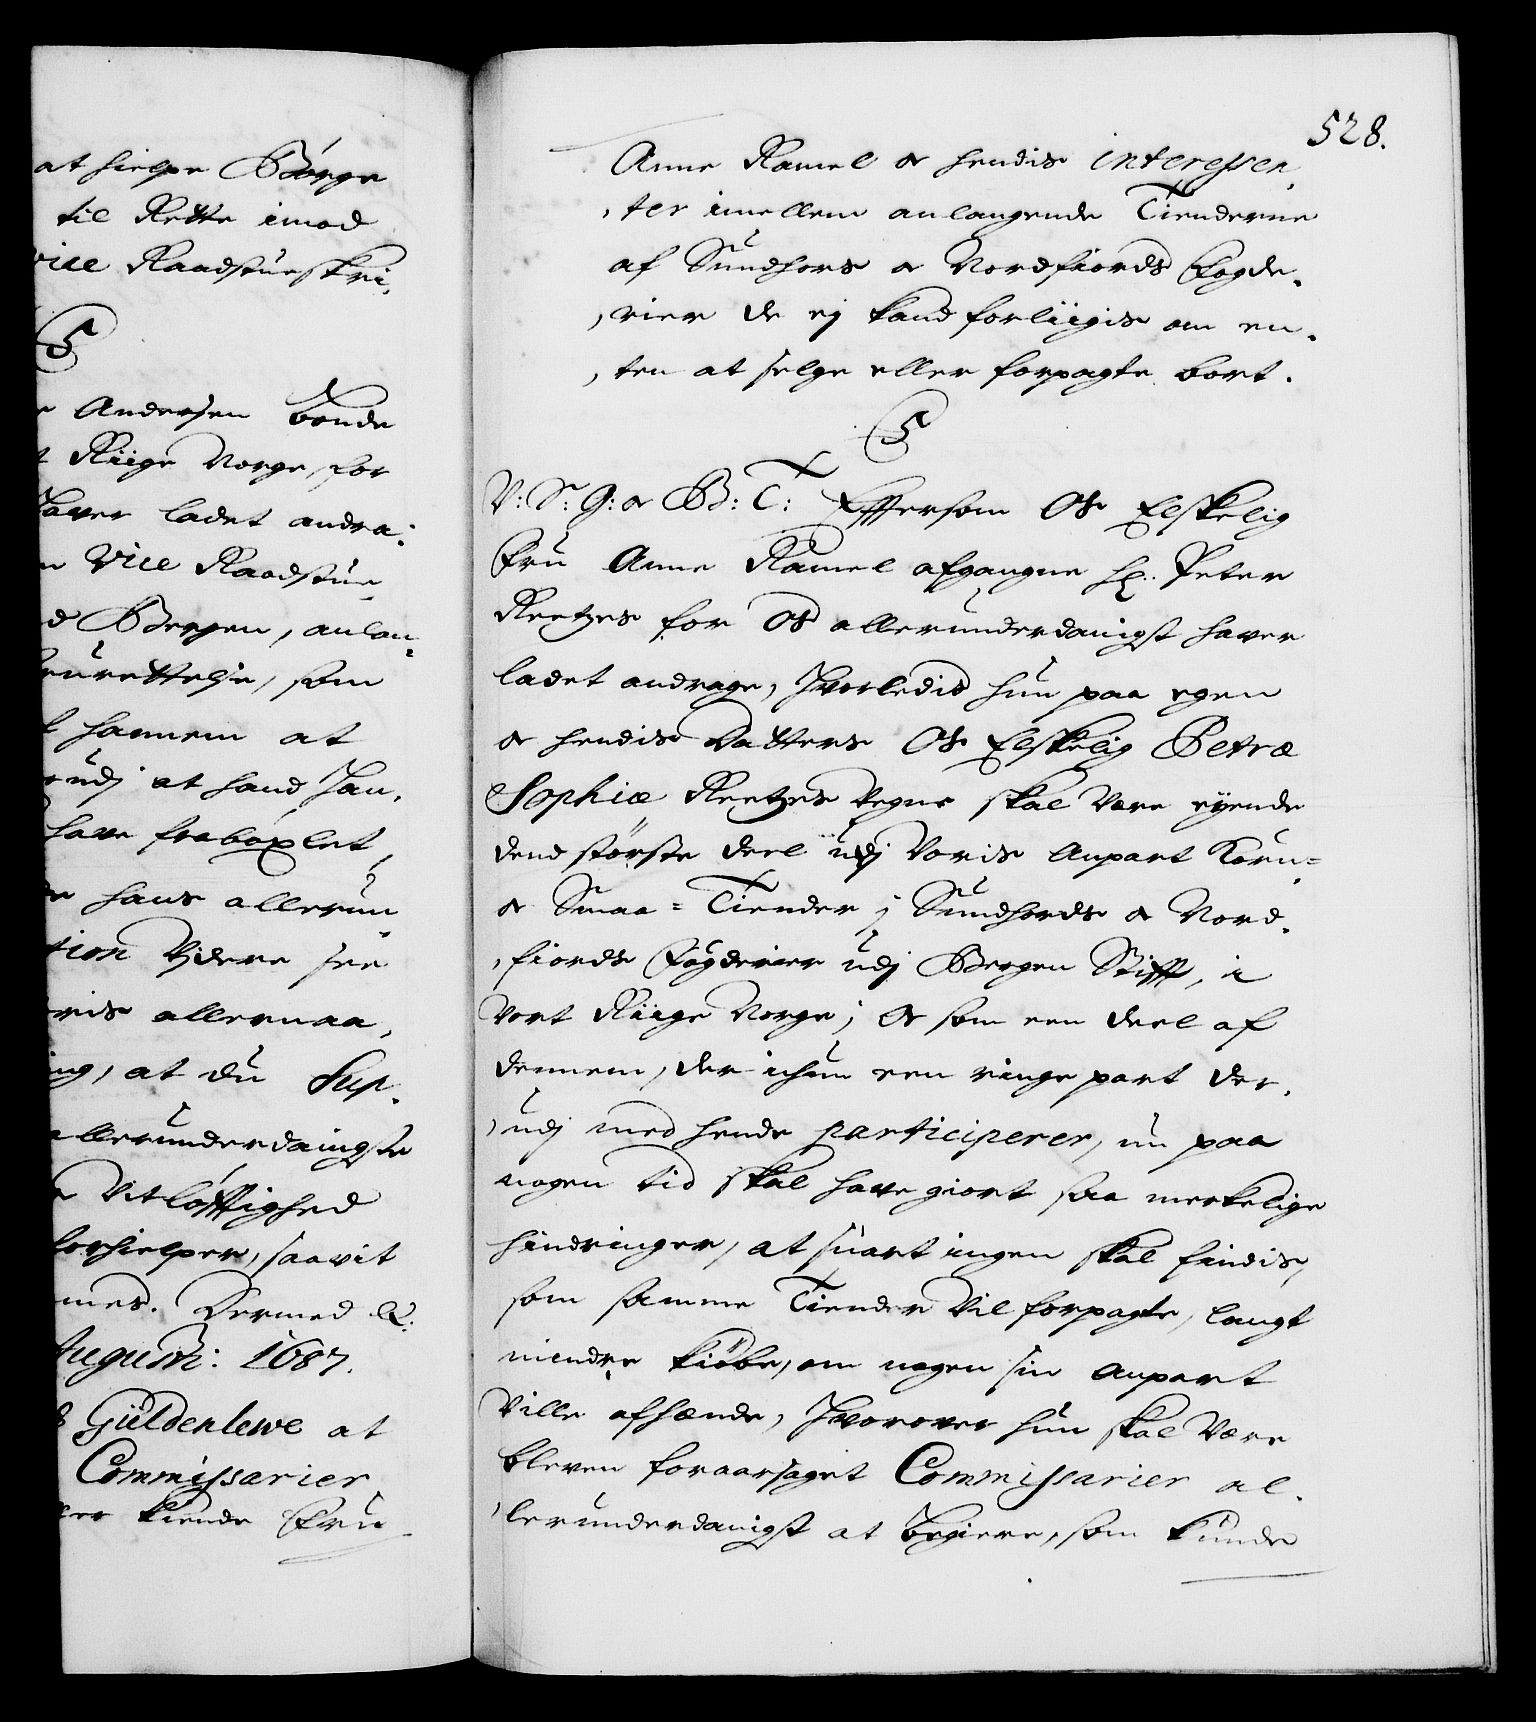 at hielpe Börge
til Rette imod
vice Raadstueskri,
5
Andersen bonde
Riige Norge, for
haver ladet andra:
vice Raadstue
Bergen, anlan
rettelse, som
hannem at
udj at hand Jan,
have frabøxlet,
hans allerun
tion Videre see
oris allernaa,
ing, at du Sup.
allerunderdanigste
Vitløfftighed
forhielper, saavit
mes. Dermed &c:
Augusti: 1687.
Güldenlewe at
Commissarier
kiende Fru
528.
Anne Ramel & hendis interessen,
,ter imellem anlangende Tienderne
af Sundhors & Nordfiords Fogde,
,rier de ej kand forliigis om en,
,ten at selge eller forpagte bort.
5
V: S: G: & B: T: Effersom Os Elskelig
Fru Anne Ramel afgangne Hr: Peter
Reetzes for Os allerunderdanigst haver
ladet andrage, hvorledis hun paa egen
& hendis Datters Os Elskelig Petræ
Sophiæ Reetzes Vegne skal være eyende
dend störste deel udj Voris Anpart Korn=
& Smaa=Tiender j Sundhords & Nord,
,fiords Fogderier udj Bergen Stifft, i
Vort Riige Norge; Og som een deel af
dennem, der ichun een ringe part der,
,udj med hende participerer, nu paa
nogen tid skal have giort saa merkelige
hindringer, at snart ingen skal findis,
som samme Tiender vil forpagte, langt
mindre kiöbe, om nogen sin Anpart
ville afhænde, hvorover hun skal være
bleven foraarsaget Commissarier al,
,lerunderdanigst at begiere, som kunde